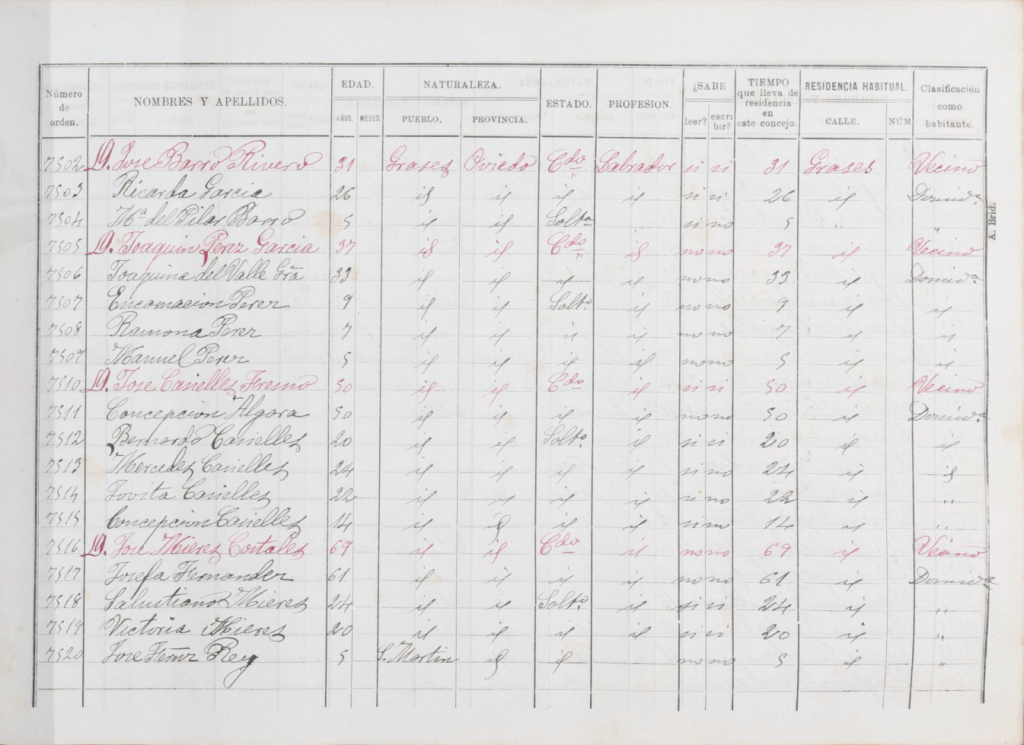 Número de orden. NOMBRES Y APELLIDOS. EDAD. AÑOS. MESES. NATURALEZA. PUEBLO. PROVINCIA. ESTADO. PROFESION. ¿SABE leer? escribir? TIEMPO que lleva de residencia en este concejo. RESIDENCIA HABITUAL. CALLE. NÚM Clasificación como habitante.
7502 D. Jose Barro Rivero 31 Grases Oviedo Cdo Labrador si si 31 Grases Vecino
7503 Ricarda Garcia 26 id id id id si si 26 id Domida
7504 Mª del Pilar Barro 5 id id Solta id si no 5 " "
7505 D. Joaquin Perez Garcia 37 id id Cdo id no no 37 id Vecino
7506 Joaquina del Valle Gra 33 id id id id no no 33 id Domida
7507 Encarnacion Perez 9 id id Solto id no no 9 id id
7508 Ramona Perez 7 id id id id no no 7 id id
7509 Manuel Perez 5 id id id id no no 5 id id
7510 D. Jose Cañelles Fresno 50 id id Cdo id si si 50 id Vecino
7511 Concepcion Algora 50 id id id id no no 50 id Domida
7512 Bernardo Cañelles 20 id id Solto id si si 20 id id
7513 Mercedes Cañelles 24 id id id id si no 24 id id
7514 Jovita Cañelles 22 id id id id si no 22 id "
7515 Concepcion Cañelles 14 id id id id si no 14 id "
7516 D. Jose Mieres Costales 69 id id Cdo id no no 69 id Vecino
7517 Josefa Fernandez 61 id id id id no no 61 id Domida
7518 Salustiano Mieres 24 id id Solto id si si 24 id "
7519 Victoria Mieres 20 id id id id si si 20 id "
7520 Jose Fernz Rey 5 S. Martin id id no no 5 id "
A. Brid.